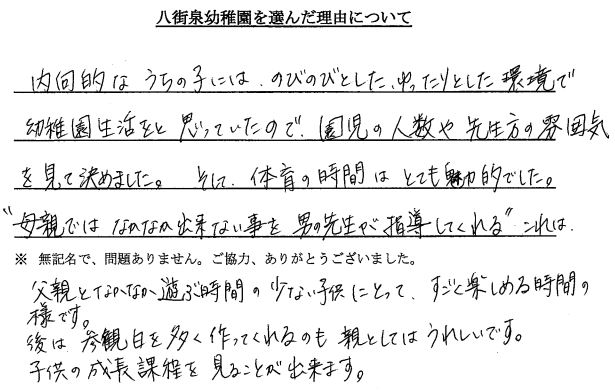 八街泉幼稚園を選んだ理由について
内向的なうちの子には、のびのびとした、ゆったりとした環境で
幼稚園生活をと思っていたので、園児の人数や先生方の雰囲気
を見て決めました。そして、体育の時間はとても魅力的でした。
“母親ではなかなか出来ない事を男の先生が指導してくれる”これは、
※ 無記名で、問題ありません。ご協力、ありがとうございました。
父親となかなか遊ぶ時間の少ない子供にとって、すごく楽しめる時間の
様です。
後は参観日を多く作ってくれるのも親としてはうれしいです。
子供の成長課程を見ることが出来ます。